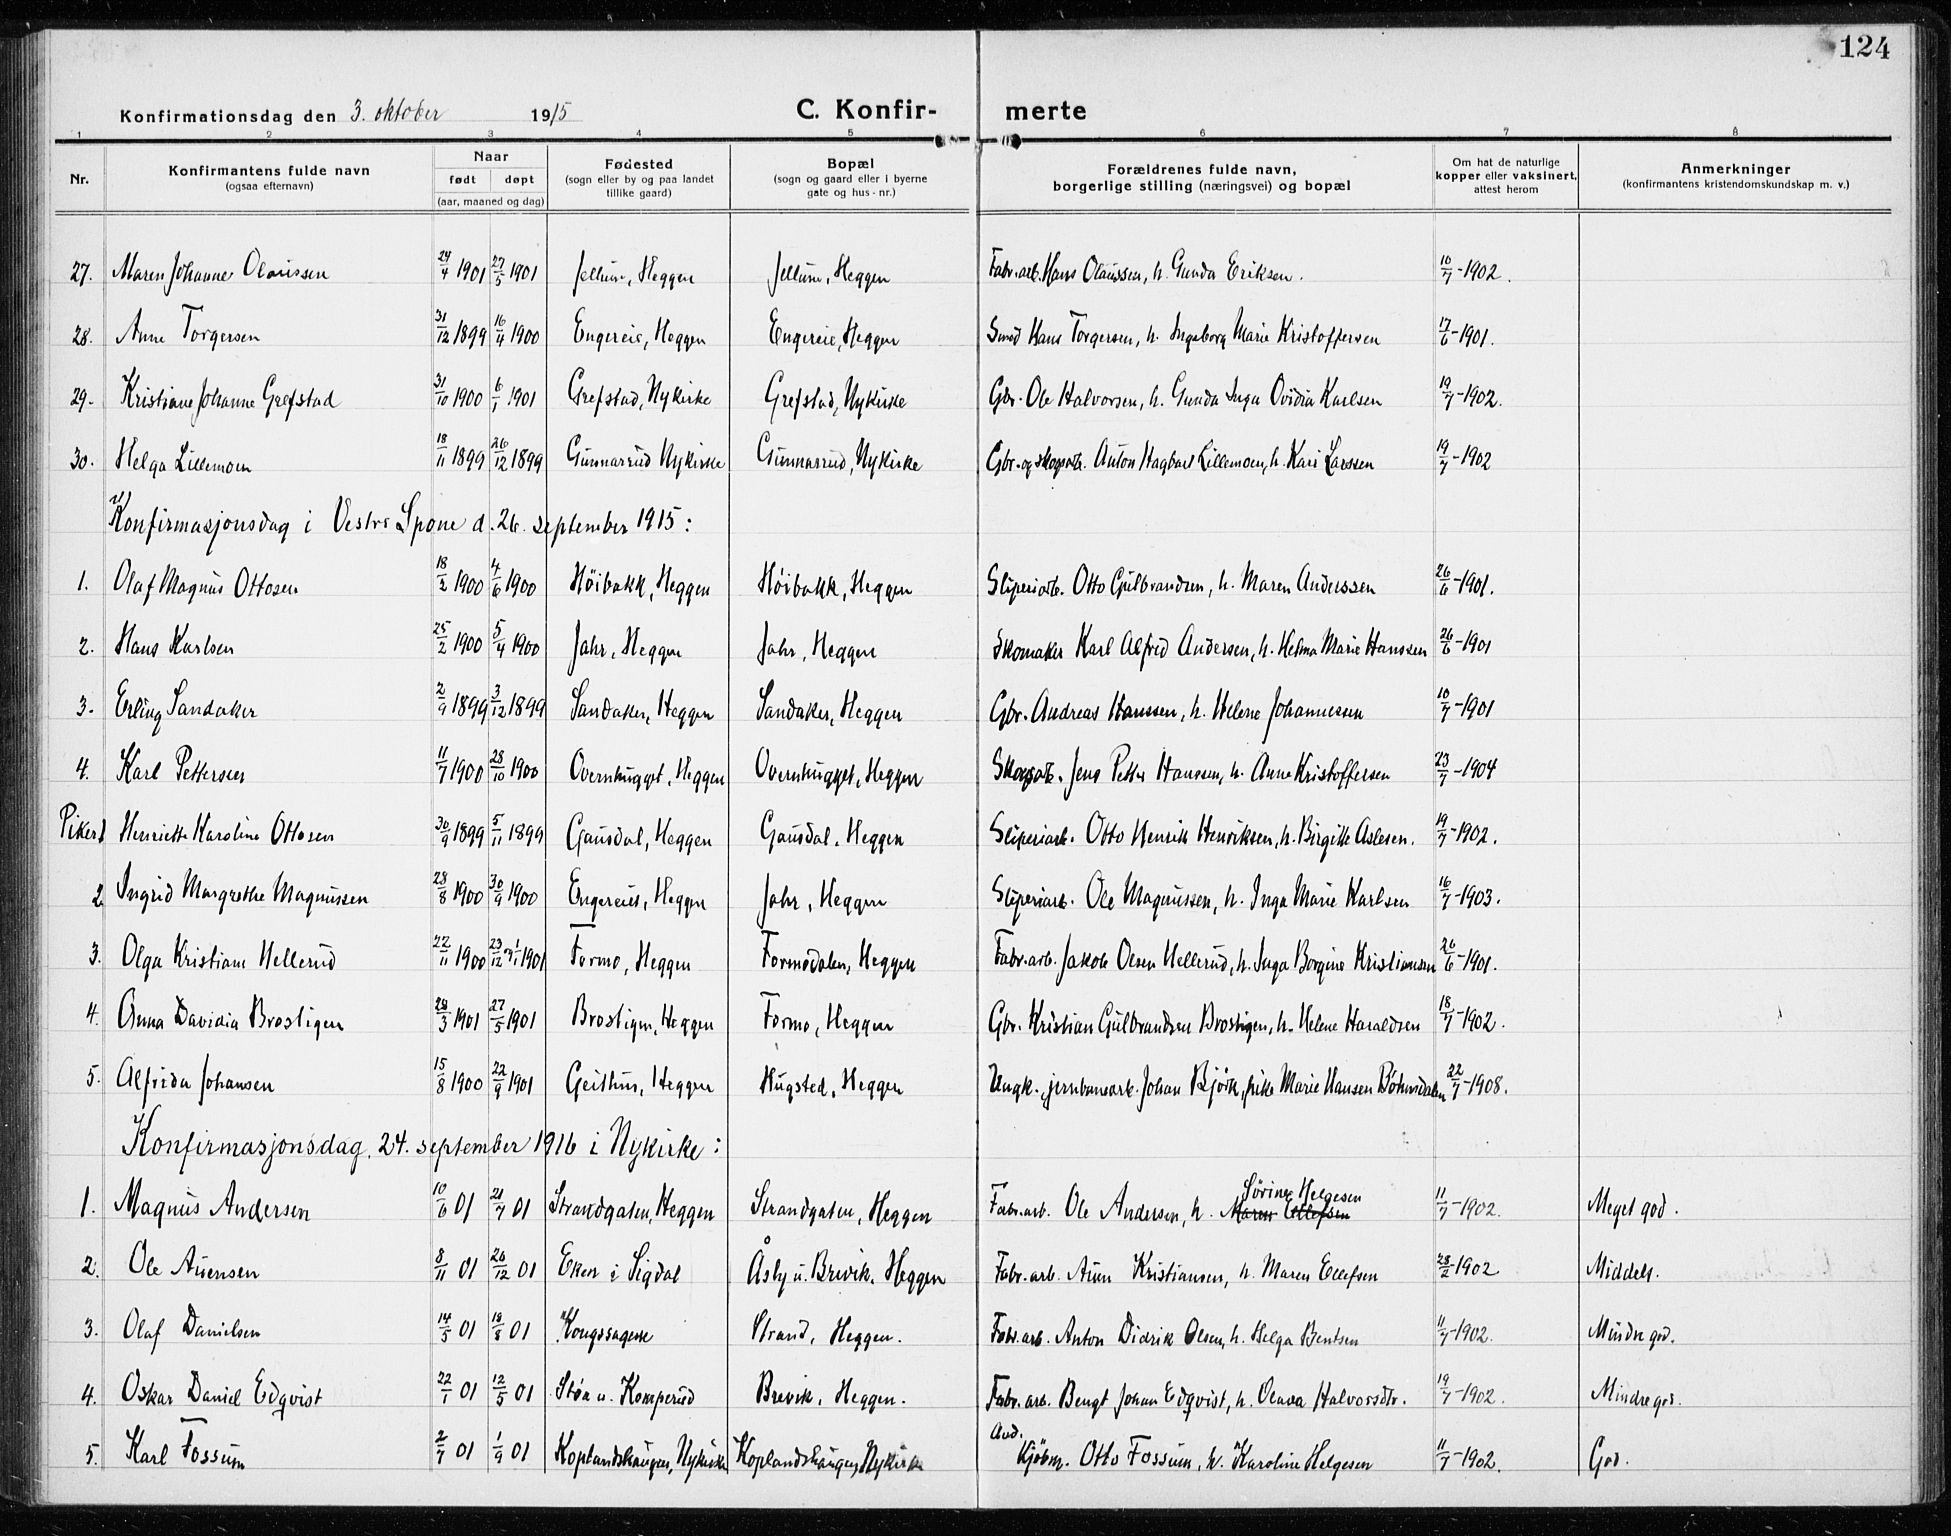 124
Konfirmationsdag den 3. oktober 1915 C. Konfir- merte
1 2 3 4 5 6 7 8
Nr. Konfirmantens fulde navn (ogsaa efternavn) Naar født døpt (aar, maaned og dag) Fødested (sogn eller by og paa landet tillike gaard) Bopæl (sogn og gaard eller i byerne gate og hus-nr.) Forældrenes fulde navn, borgerlige stilling (næringsvei) og bopæl Om hat de naturlige kopper eller vaksinert, attest herom Anmerkninger (konfirmantens kristendomskundskap m. v.)
27. Maren Johanne Olaussen 24/4 1901 27/5 1901 Jellum, Heggen Jellum, Heggen Fabr.arb. Hans Olaussen, h. Gunda Eriksen. 10/7-1902.
28. Anne Torgersen 31/12 1899 16/4 1900 Engereie, Heggen Engereie, Heggen Smed Hans Torgersen, h. Ingeborg Marie Kristoffersen 17/6-1901.
29. Kristiane Johanne Grefstad 31/10 1900 6/1 1901 Grefstad, Nykirke Grefstad, Nykirke Gbr. Ole Halvorsen, h. Gunda Inga Ovidia Karlsen 19/7-1902.
30. Helga Lillemoen 18/11 1899 26/12 1899 Gunnarrud Nykirke Gunnarrud, Nykirke Gbr. og skogarb. Anton Hagbart Lillemoen, h. Kari Larssen 19/7-1902
Konfirmasjonsdag i Vestre Spone d. 26. september 1915:
1. Olaf Magnus Ottosen 18/2 1900 4/6 1900 Höibakk, Heggen Höibakk, Heggen Sliperiarb. Otto Gulbrandsen, h. Maren Anderssen 26/6-1901.
2. Hans Karlsen 25/2 1900 5/4 1900 Jahr, Heggen Jahr, Heggen Skomaker Karl Alfred Andersen, h. Helma Marie Hanssen 26/6-1901
3. Erling Sandaker 2/9 1899 3/12 1899 Sandaker, Heggen Sandaker, Heggen Gbr. Andreas Hanssen, h. Helene Johannessen 10/7-1901
4. Karl Pettersen 11/7 1900 28/10 1900 Overnhugget, Heggen Overnhugget, Heggen Skogsarb. Jens Petter Hanssen, h. Anne Kristoffersen 23/7-1904
Piker 1 Henriette Karoline Ottosen 30/9 1899 5/11 1899 Gausdal, Heggen Gausdal, Heggen Sliperiarb. Otto Henrik Henriksen, h. Birgitte Aslesen. 19/7-1902.
2 Ingrid Margrethe Magnussen 28/8 1900 30/9 1900 Engereies, Heggen Jahr, Heggen Sliperiarb. Ole Magnussen, h. Inga Marie Karlsen 16/7-1903.
3. Olga Kristiane Hellerud 22/11 1900 23/12 1/1 1901 Formo, Heggen Formodalen, Heggen Fabr.arb. Jakob Olsen Hellerud, h. Inga Borgine Kristiansen 26/6-1901.
4. Anna Davidia Brostigen 28/3 1901 27/5 1901 Brostigen, Heggen Formo, Heggen Gbr. Kristian Gulbrandsen Brostigen, h. Helene Haraldsen 18/7-1902.
5. Alfrida Johansen 15/8 1900 22/9 1901 Geithus, Heggen Hugsted, Heggen Ungk. jernbanearb. Johan Bjök, pike Marie Hansen 22/7-1908.
Konfirmasjonsdag. 24. september 1916 i Nykirke:
1. Magnus Andersen 10/6 01 21/7 01 Strandgaten, Heggen Strandgaten, Heggen Fabr.arb. Ole Andersen, h. Maren Ellefsen Sörine Helgesen 11/7-1902. Meget god.
2. Ole Auensen 8/11 01 26/12 01 Eken i Sigdal Åsly u. Brevik, Heggen Fabr.arb. Auen Kristiansen, h. Maren Ellefsen 28/2-1902 Middels.
3. Olaf Danielsen 14/5 01 18/8 01 Kongssagene Strand, Heggen. Fabr.arb. Anton Didrik Olsen, h. Helga Bentsen 11/7-1902. Mindre god.
4. Oskar Daniel Edqvist 22/1 01 12/5 01 Støa u. Komperud Brevik, Heggen. Fabr.arb. Bengt Johan Edqvist, h. Olava Halvorsdtr. 19/7-1902. Mindre god.
5. Karl Fossum 2/7 01 1/9 01 Koplandshaugen, Nykirke Koplandshaugen, Nykirke And. Kjöbm. Otto Fossum, h. Karoline Helgesen 11/7-1902. God.